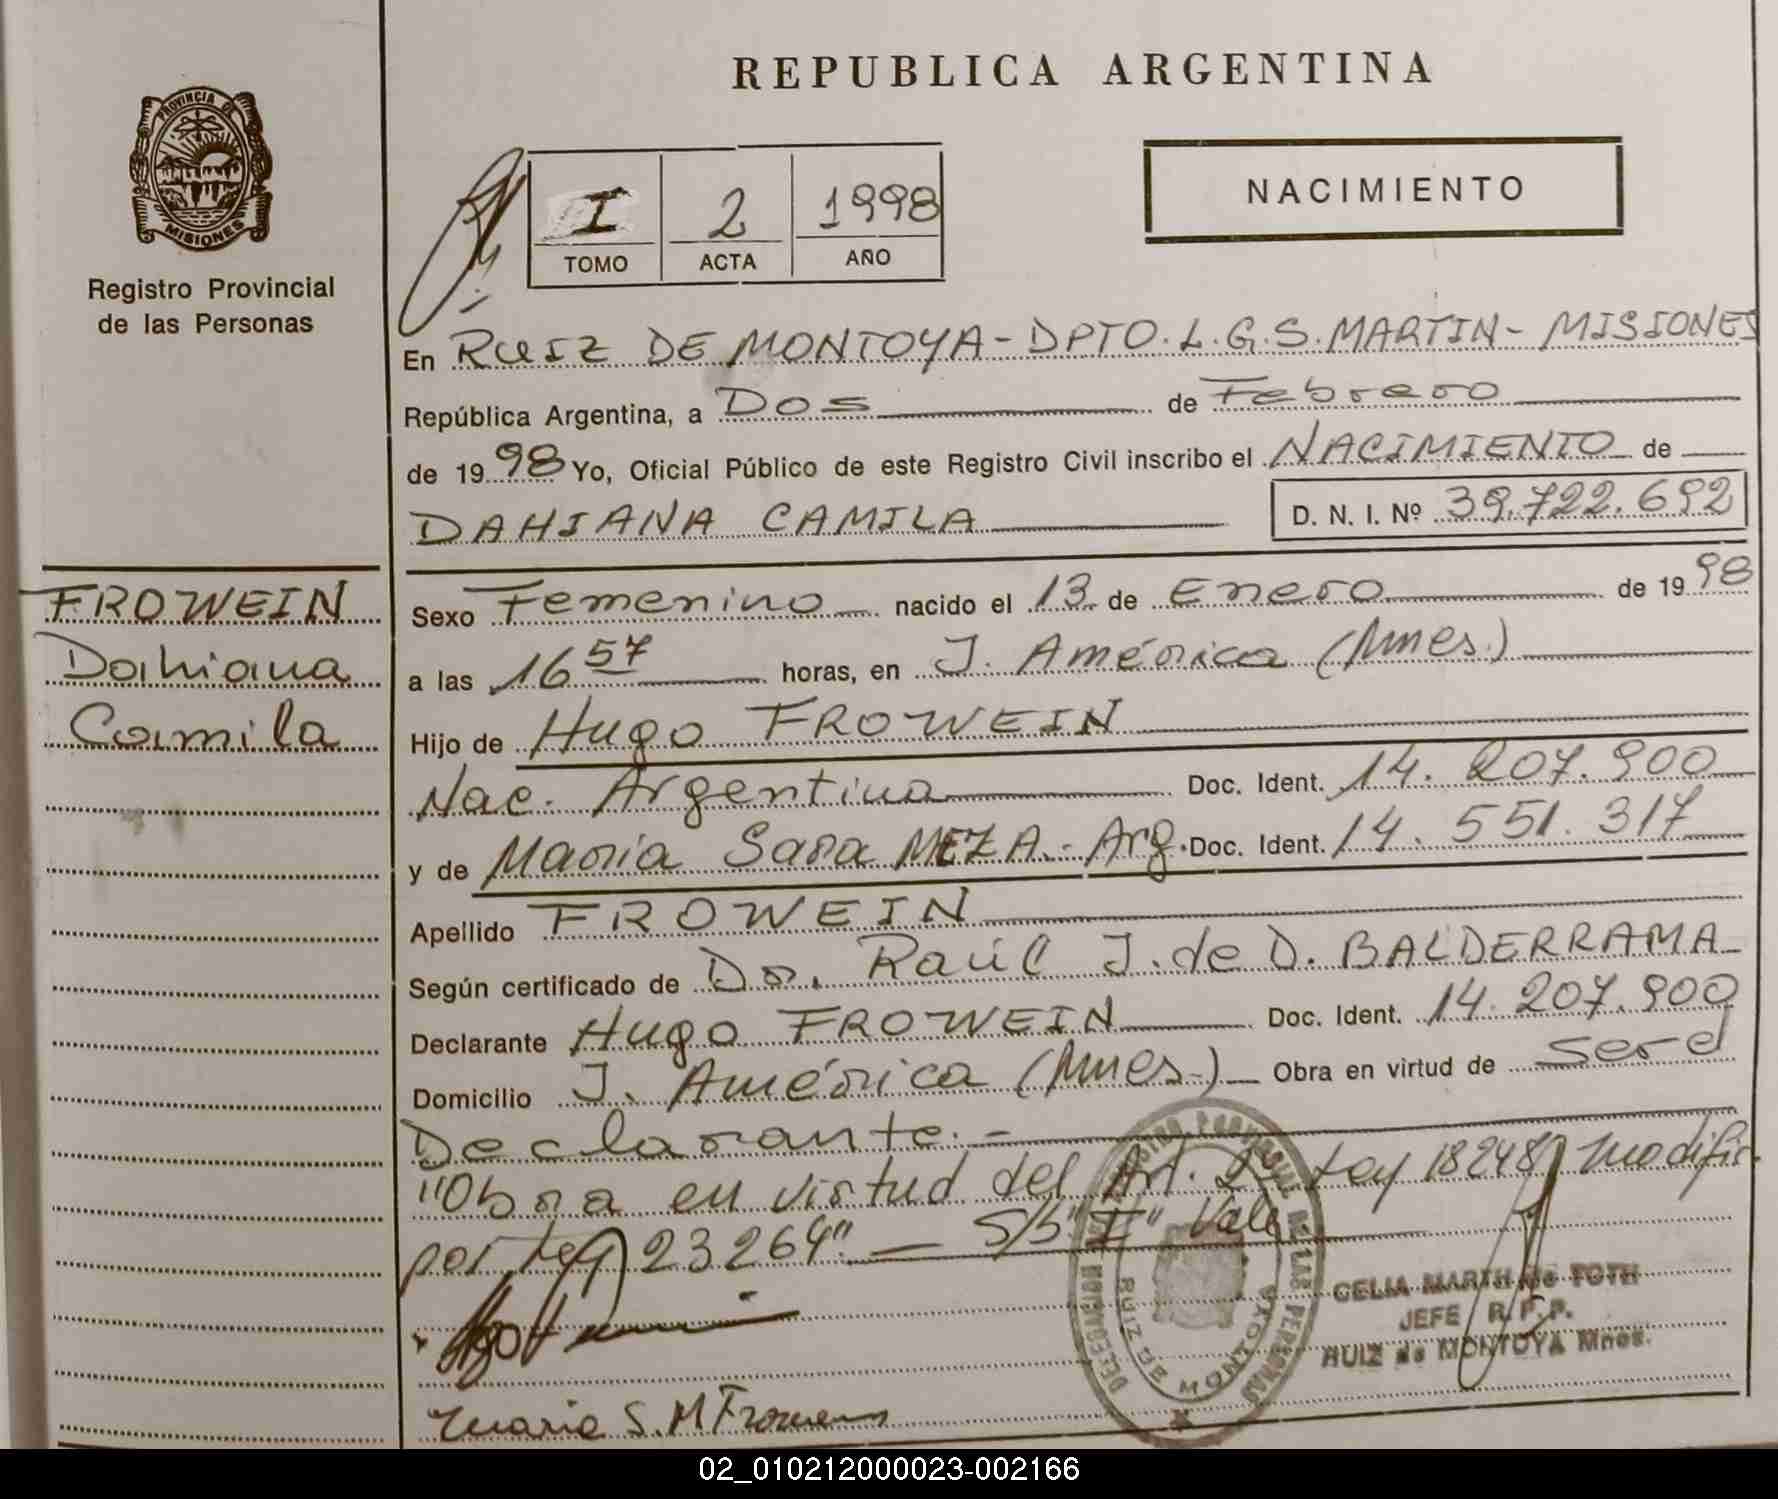 REPUBLICA ARGENTINA
PROVINCIA DE
MISIONES
Registro Provincial
de las Personas
I 2 1998
TOMO ACTA AÑO
NACIMIENTO
En RUIZ DE MONTOYA - DPTO. L.G.S. MARTIN - MISIONES
República Argentina, a Dos de Febrero
de 1998 Yo, Oficial Público de este Registro Civil inscribo el NACIMIENTO de
DAHIANA CAMILA D. N. I. Nº 39.722.692
FROWEIN
Dahiana
Camila
Sexo Femenino nacido el 13 de Enero de 1998
a las 16 57 horas, en J. América (Mnes.)
Hijo de Hugo FROWEIN
Nac. Argentina Doc. Ident. 14.207.900
y de Maria Sara MEZA.- Arg. Doc. Ident. 14.551.317
Apellido FROWEIN
Según certificado de Dr. Raúl J. de D. BALDERRAMA
Declarante Hugo FROWEIN Doc. Ident. 14.207.900
Domicilio J. América (Mnes.) Obra en virtud de ser el
Declarante.-
"Obra en virtud del Art. 2 Ley 18248 modific.
por Ley 23264". S/b "I" Vale
CELIA MARTH de TOTH
JEFE R.P.P.
RUIZ de MONTOYA Mnes.
RUIZ DE MONTOYA
Maria S. M Frowein
02_010212000023-002166